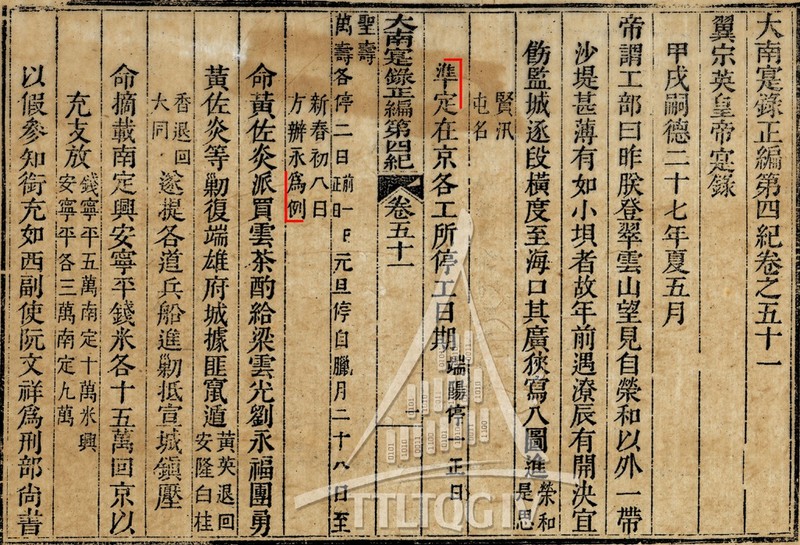 大南寔錄正編第四紀卷之五十一
翼宗英皇帝寔錄
甲戌嗣德二十七年夏五月
帝謂工部曰昨朕登翠雲山望見自榮和以外一帶
沙堤甚薄有如小垻者故年前遇潦辰有開決宜
飭監城逐段橫度至海口其廣狹寫入圖進
榮和
是思
賢汛
屯名
準定在京各工所停工日期端陽停正日
大南寔錄正編第四紀 卷五十一
聖壽
萬壽各停二日前一日正日元旦停自臘月二十八日至
新春初八日
方辦永爲例
命黃佐炎派買雲茶酌給梁雲光劉永福團勇
黃佐炎等勦復端雄府城據匪竄遁
黃英退回
安隆白桂
香退回
大同
遂提各道兵船進勦抵宣城鎮壓
命摘載南定興安寧平錢米各十五萬回京以
充支放
錢寧平五萬南定十萬米興
安寧平各三萬南定九萬
以假參知銜充如西副使阮文祥爲刑部尚書
TTLTQG IV